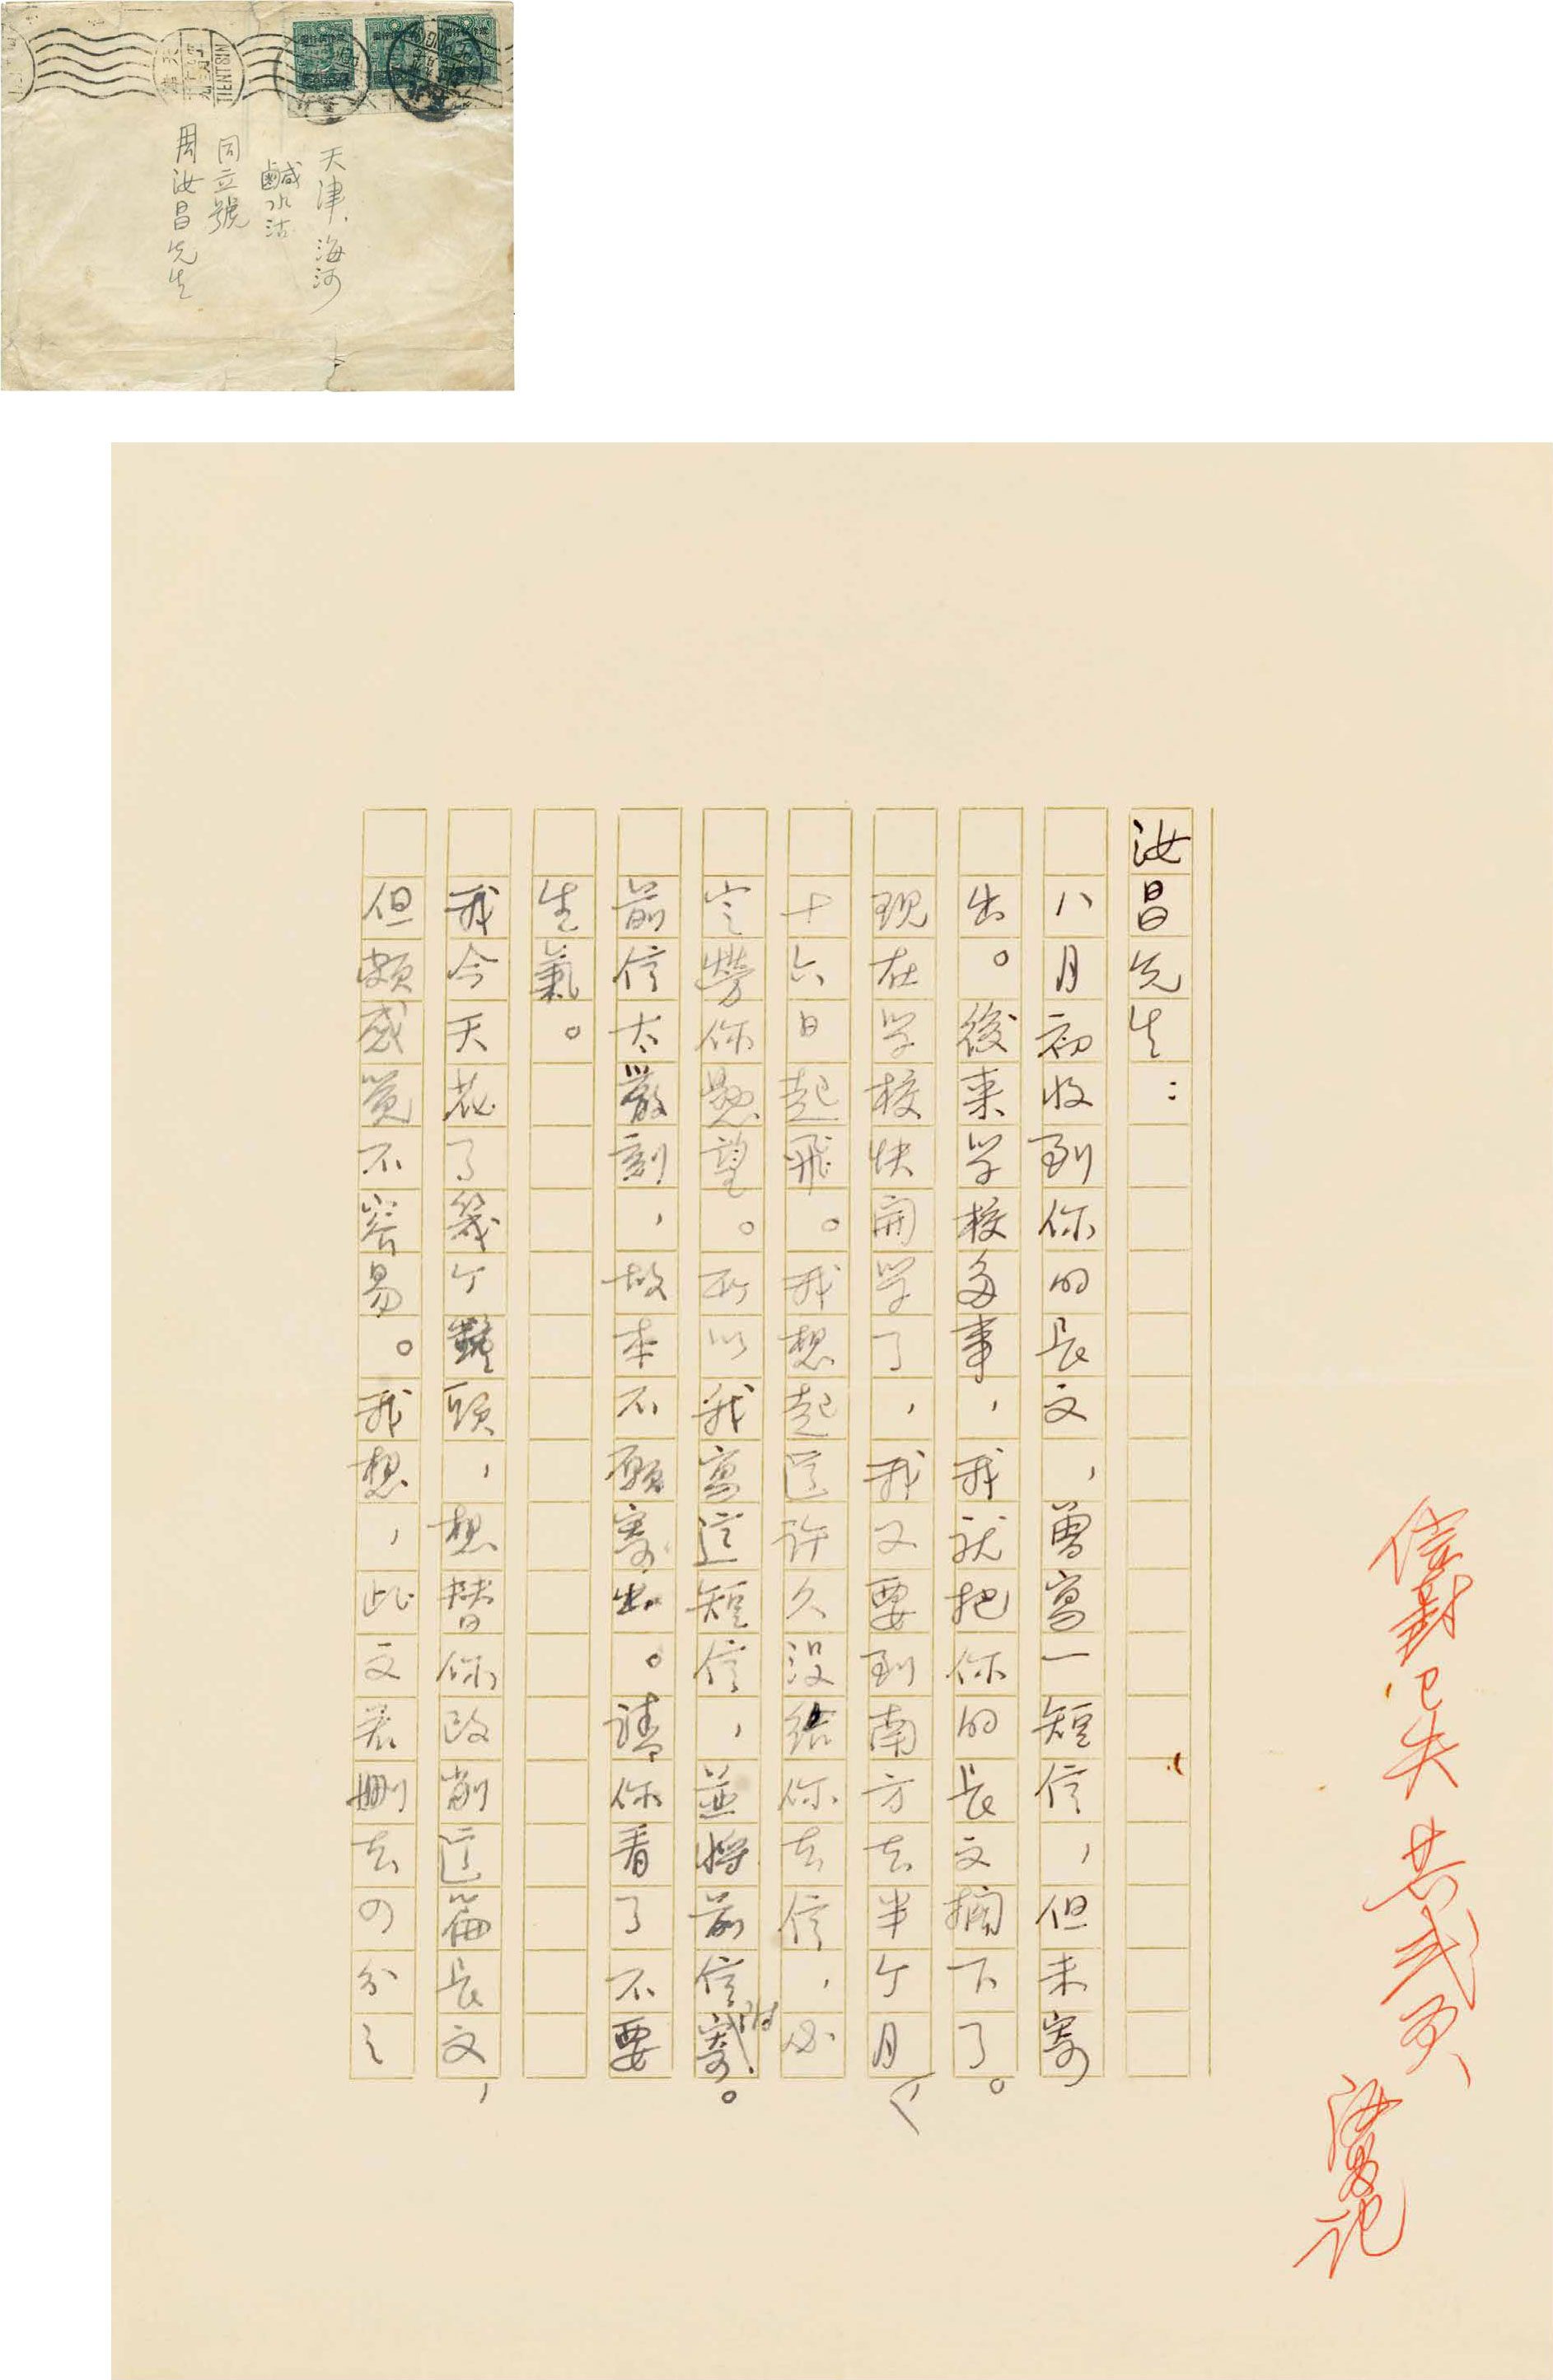 天津
TIENTSIN
天津，海河
鹹水沽
同立號
周汝昌先生
汝昌先生：
八月初收到你的長文，曾寫一短信，但未寄
出。後來学校多事，我就把你的長文擱下了。
現在学校快開学了，我又要到南方去半个月，
十六日起飛。我想起這許久没給你去信，必
定勞你懸望。所以我寫這短信，並將前信附寄。
前信太嚴刻，故本不願寄出。請你看了不要
生氣。
我今天花了幾个鐘頭，想替你改削這篇長文，
但頗感覺不容易。我想，此文若刪去四分之
信封已失 共弍页
汝昌記